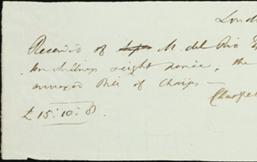 Lond
Received of M del Rio E
ten shillings eight pence, the
annexed Bill of Charges —
Charles
£ 15:10:8